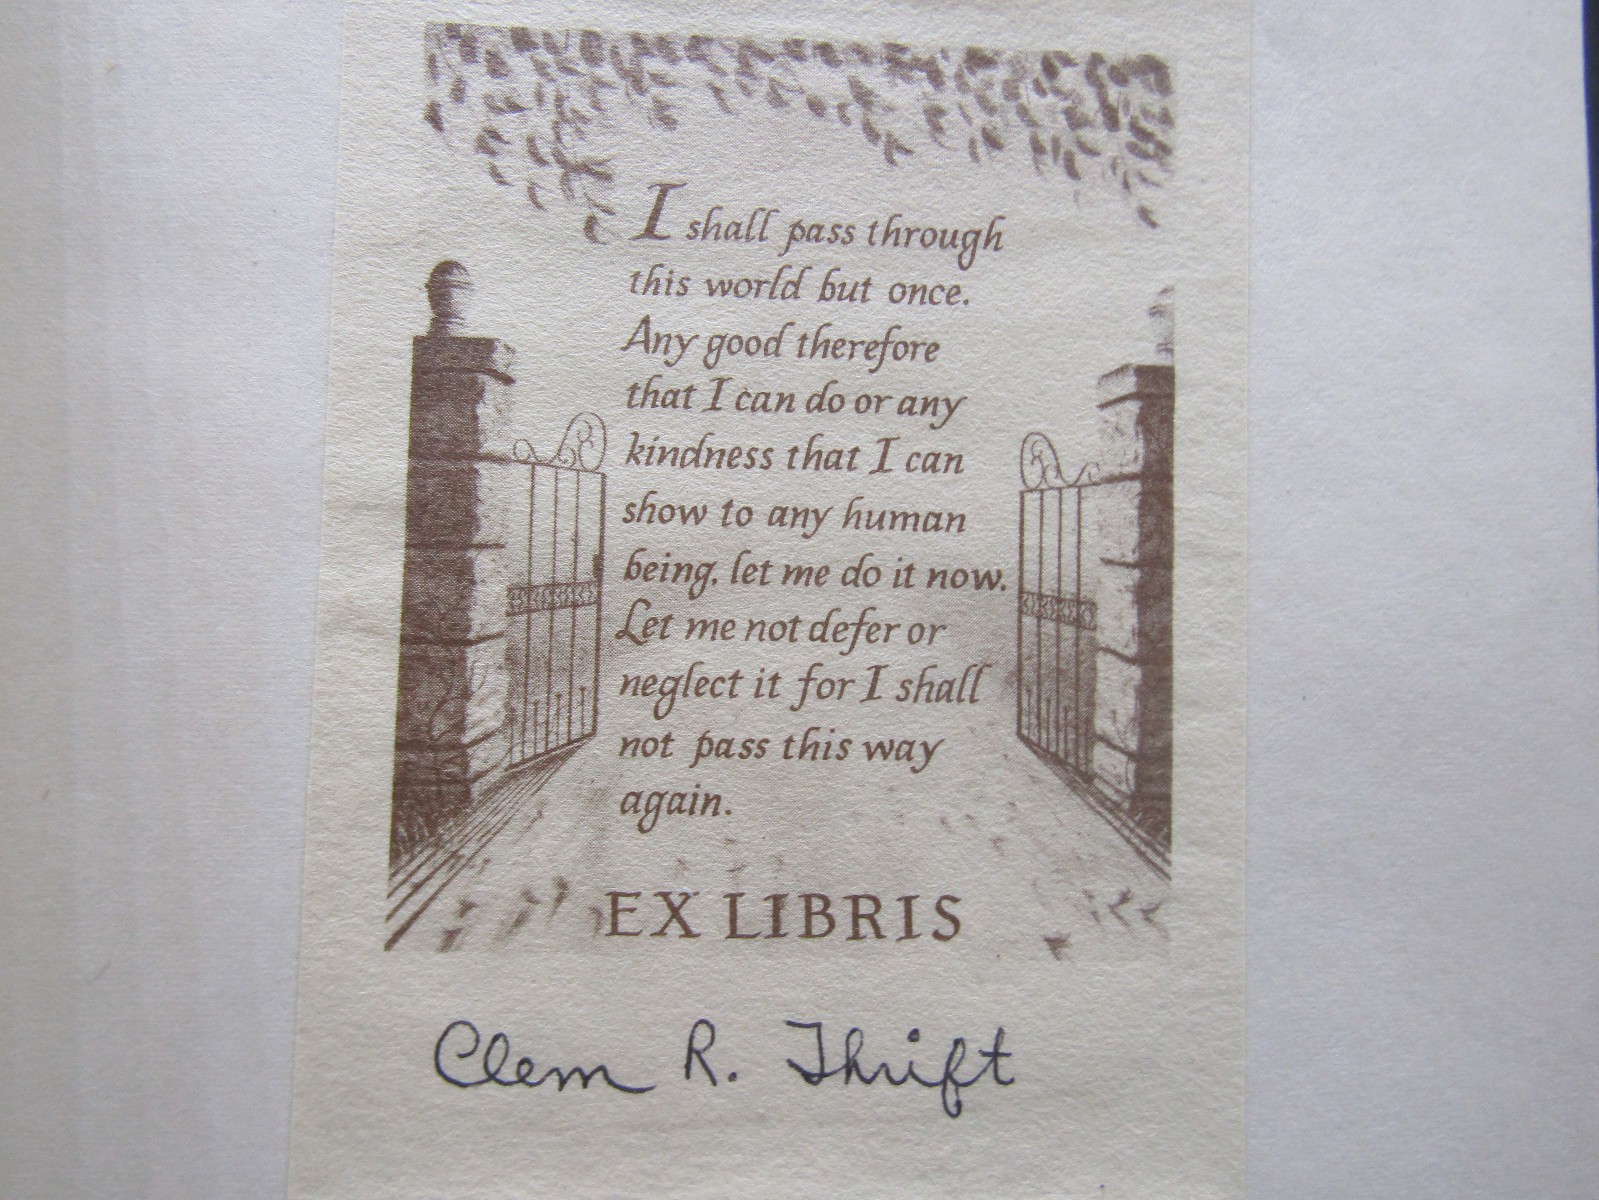 I shall pass through
this world but once.
Any good therefore
that I can do or any
kindness that I can
show to any human
being, let me do it now.
Let me not defer or
neglect it for I shall
not pass this way
again.
EX LIBRIS
Clem R. Thrift